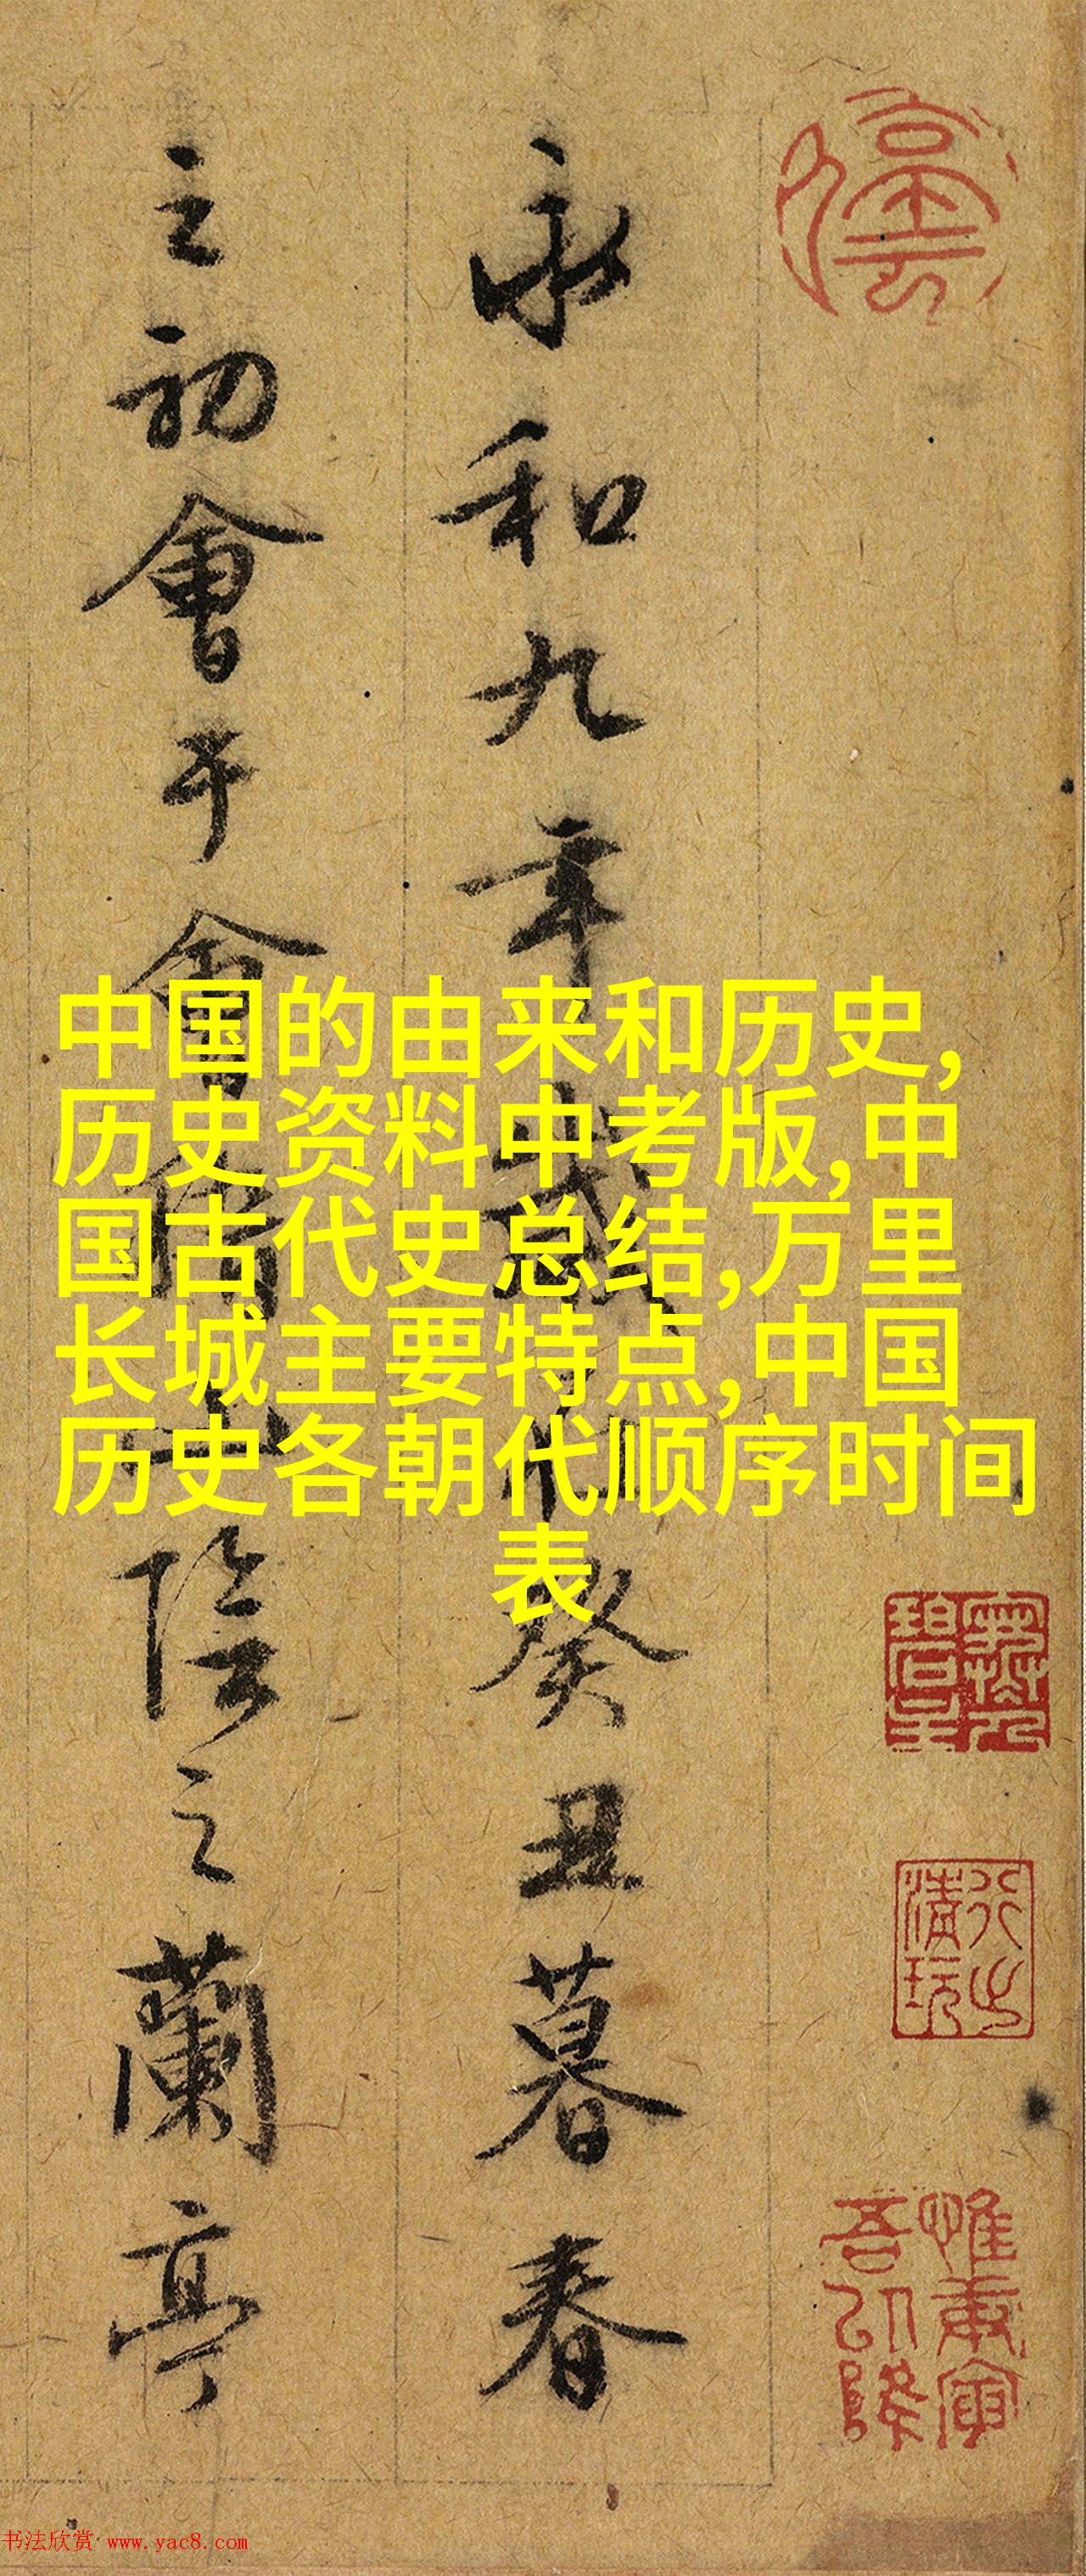 永和九年歲癸丑暮春
之初會于會稽山陰之蘭亭
中国的由来和历史,
历史资料中考版,中
国古代史总结,万里
长城主要特点,中国
历史各朝代顺序时间
表
清玩
书法欣赏 www.yac8.com